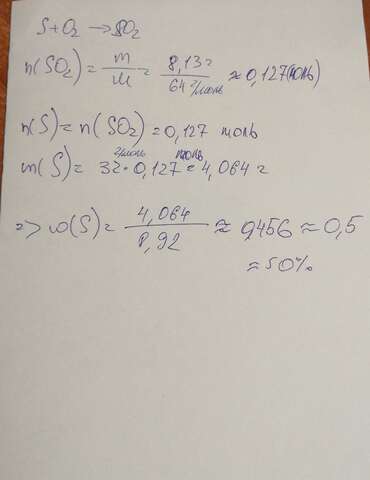 S+O₂ → SO₂
n(SO₂) = m/M = 8,13 г / 64 г/моль ≈ 0,127 (моль)
n(S) = n(SO₂) = 0,127 моль
m(S) = 32 г/моль · 0,127 моль = 4,064 г
=> ω(S) = 4,064 / 8,92 ≈ 0,456 ≈ 0,5
≈ 50%